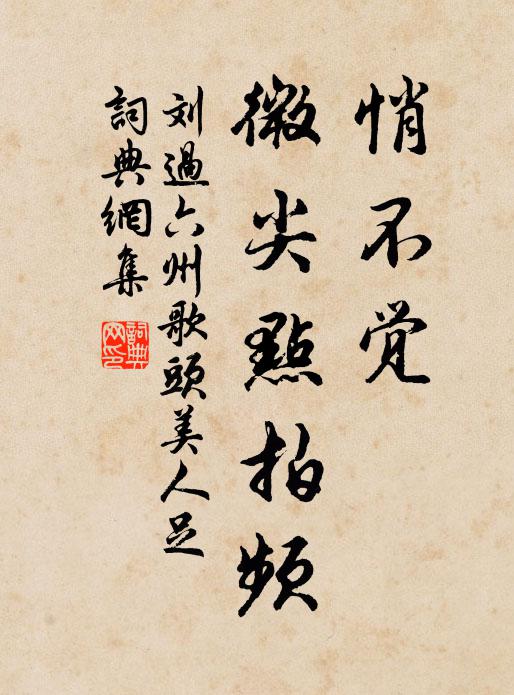 悄不觉
微尖點拍頻
刘過六州歌頭美人足
詞典網集
詞典网印